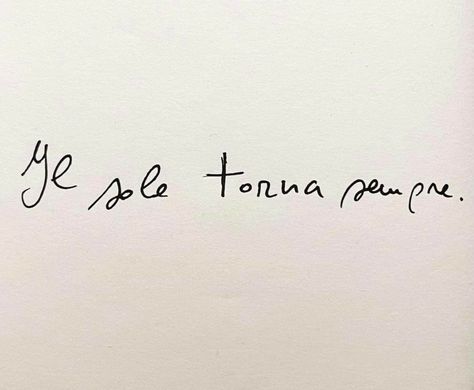 Il sole torna sempre.